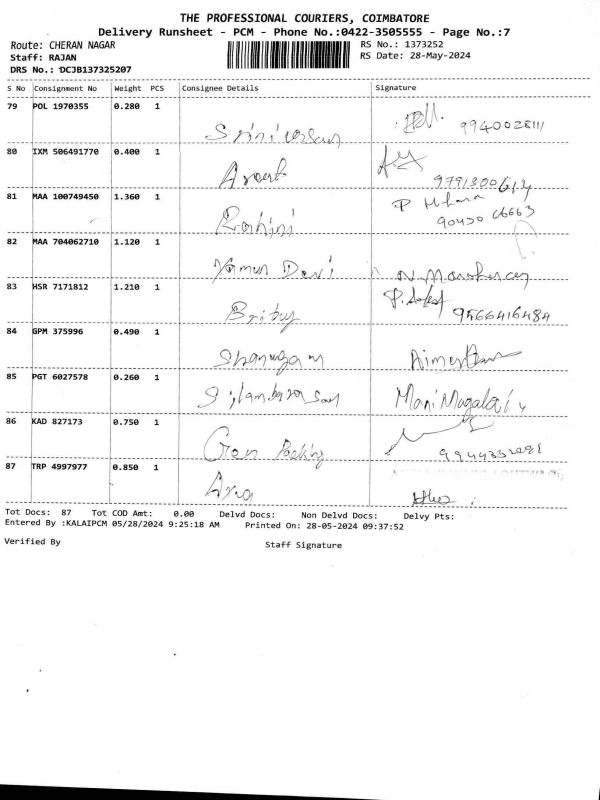 THE PROFESSIONAL COURIERS, COIMBATORE
Delivery Runsheet - PCM - Phone No.:0422-3505555 - Page No.:7
Route: CHERAN NAGAR RS No.: 1373252
Staff: RAJAN RS Date: 28-May-2024
DRS No.: DCJB137325207
S No Consignment No Weight PCS Consignee Details Signature
79 POL 1970355 0.280 1
Srinivasan 9940028111
80 IXM 506491770 0.400 1
9791300614
81 MAA 100749450 1.360 1
Rohini 90430 66663
82 MAA 704062710 1.120 1
Yamun Devi
83 HSR 7171812 1.210 1
9566416484
84 GPM 375996 0.490 1
Shanmugam
85 PGT 6027578 0.260 1
Silambarasan Mani Magalai
86 KAD 827173 0.750 1
Gren Packing
87 TRP 4997977 0.850 1
Tot Docs: 87 Tot COD Amt: 0.00 Delvd Docs: Non Delvd Docs: Delvy Pts:
Entered By :KALAIPCM 05/28/2024 9:25:18 AM Printed On: 28-05-2024 09:37:52
Verified By Staff Signature